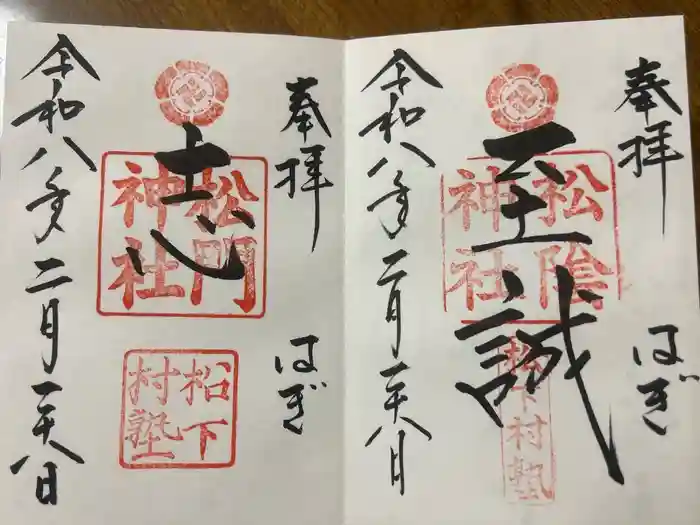 奉拝
はぎ
至誠
松陰神社
松下村塾
令和八年二月二十八日
奉拝
はぎ
志
松門神社
松下村塾
令和八年二月二十八日